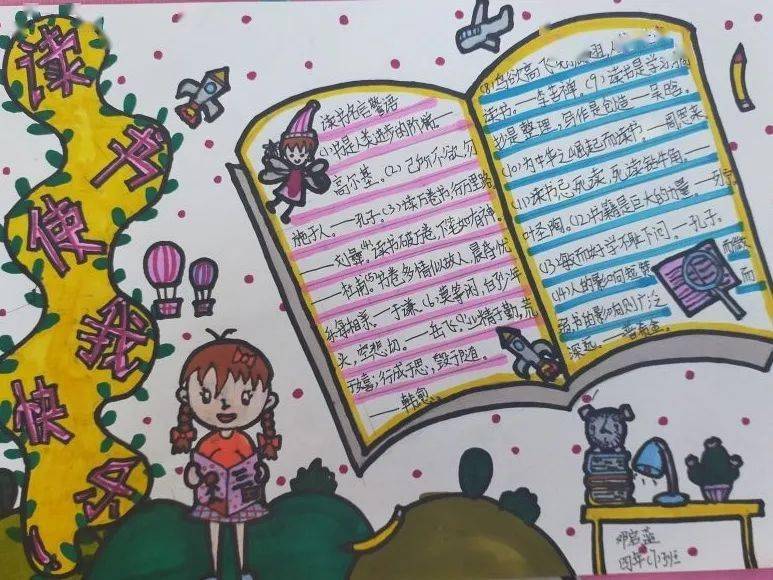 读
书
使
我
快
乐
读书名言警语
(1)书是人类进步的阶梯。——
高尔基。(2)己所不欲,勿
施于人。——孔子。(3)读万卷书,行万里路。
——刘彝。(4)读书破万卷,下笔如有神。
——杜甫。(5)书卷多情似故人,晨昏忧
乐每相亲。——于谦。(6)莫等闲,白了少年
头,空悲切。——岳飞。(7)业精于勤,荒
于嬉;行成于思,毁于随。
——韩愈。
(8)鸟欲高飞先振翅,人
读书。——李苦禅。(9)读书是学习,
抄是整理,写作是创造。——吴晗。
(10)为中华之崛起而读书。——周恩来。
(11)读书忌死读,死读钻牛角。——
叶圣陶。(12)书籍是巨大的力量。——列宁。
(13)敏而好学,不耻下问。——孔子。
(14)人的影响短暂而微
而书的影响则广泛而
深远。——普希金。
四年(1)班